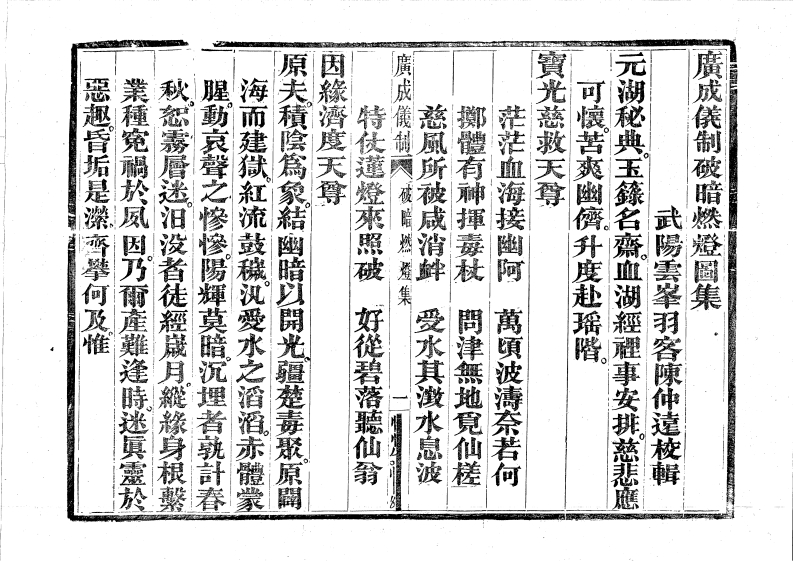 廣成儀制破暗燃燈圖集
武陽雲峯羽客陳仲遠校輯
元湖秘典。玉籙名齋。血湖經裡事安排。慈悲應
可懷。苦爽幽儕。升度赴瑶階。
寶光慈救天尊
茫茫血海接幽阿 萬頃波濤奈若何
擲體有神揮毒杖 問津無地覓仙槎
慈風所被咸消衅 愛水其澂水息波
廣成儀制 破暗燃燈集 一
特仗蓮燈來照破 好從碧落聽仙翁
因緣濟度天尊
原夫。積陰爲象。結幽暗以開光。疆楚毒聚。原闢
海而建獄。紅流鼓穢。汎愛水之滔滔。赤體蒙
腥。動哀聲之慘慘。陽輝莫暗。沉埋者孰計春
秋。怨霧層迷。汨沒者徒經歲月。縱緣身根繫
業種寃禍於夙因。乃爾產難逢時。迷眞靈於
惡趣。昏垢是濴。齊攀何及。惟